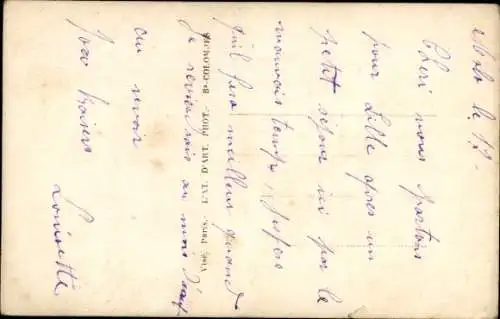 le 17 -
Chéri nous partons
pour Lille après un
petit séjour ici par le
mauvais temps, j'espère
qu'il fera meilleur quand
je reviendrais au mois d'août
au revoir
bons baisers
VISÉ PARIS. L'AT. D'ART. PHOT. - BS-COLOMBES